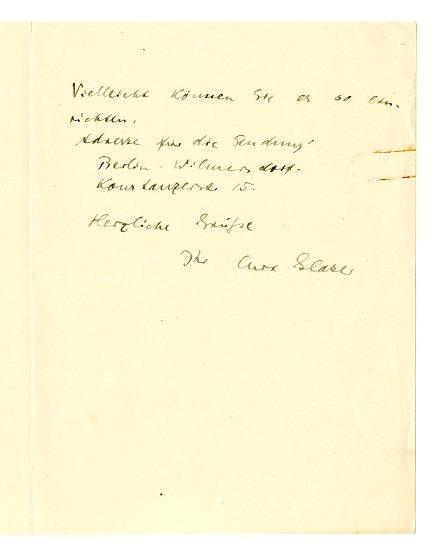 Vielleicht können Sie es so ein-
richten.
Adresse für die Sendung:
Berlin-Wilmersdorf.
Konstanzerstr. 15.
Herzliche Grüße
Ihr Curt Glaser